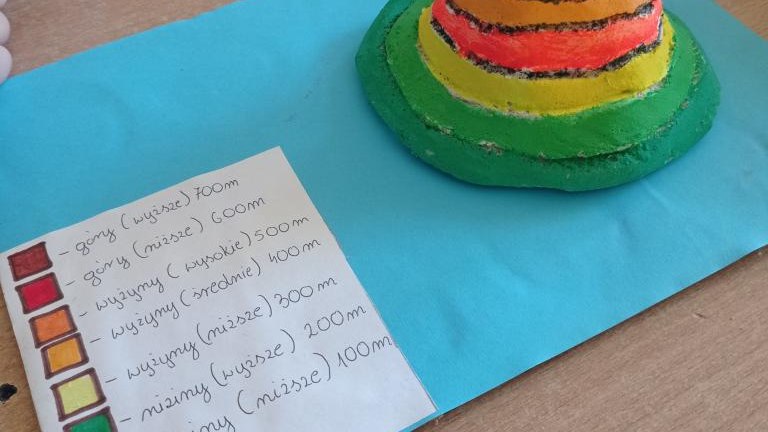 - góry (wyższe) 700m
- góry (niższe) 600m
- wyżyny (wysokie) 500m
- wyżyny (średnie) 400m
- wyżyny (niższe) 300m
- niziny (wyższe) 200m
(niższe) 100m